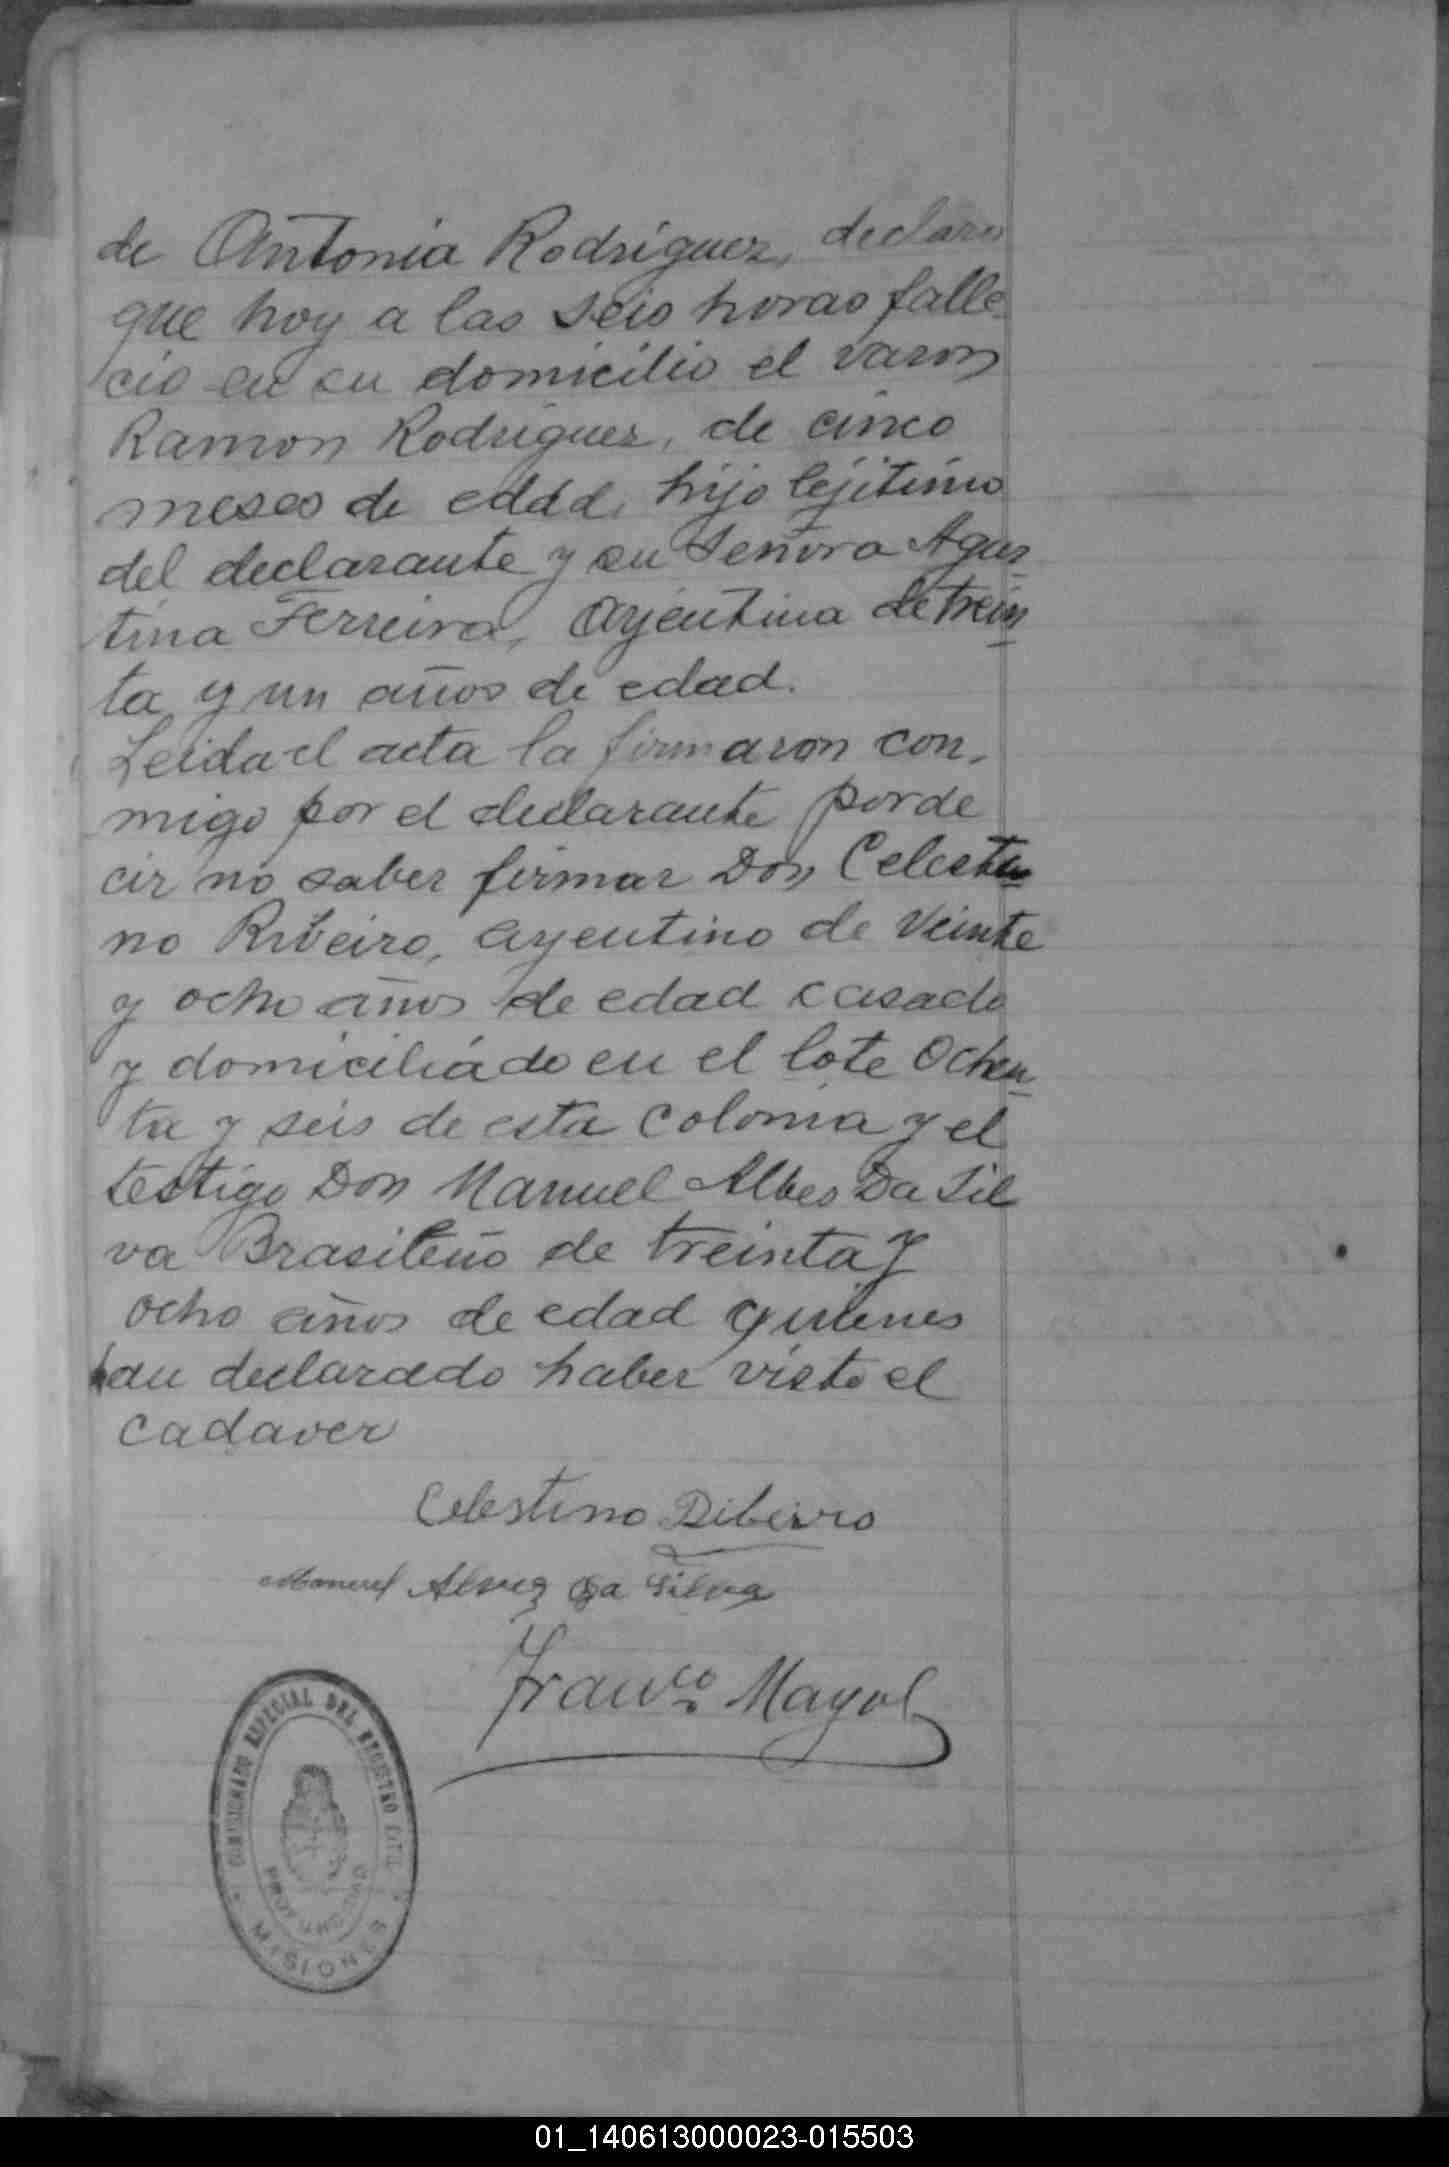 de Antonia Rodriguez, declaro
que hoy a las seis horas falle
cio en su domicilio el varon
Ramon Rodriguez, de cinco
meses de edad, hijo lejitimo
del declarante y su Señora Agus
tina Ferreira, Arjentina de trein
ta y un años de edad.
Leida el acta la firmaron con,
migo por el declarante por de
cir no saber firmar Don Celesti
no Ribeiro, arjentino de Veinte
y ocho años de edad casado
y domiciliado en el lote Ochen
ta y seis de esta Colonia y el
testigo Don Manuel Albes Da Sil
va Brasileño de treinta y
ocho años de edad quienes
han declarado haber visto el
cadaver
Celestino Ribeiro
Manuel Alvez da Silva
Franco Mayol
COMISIONADO ESPECIAL DEL REGISTRO CIVIL
MISIONES
01_140613000023-015503